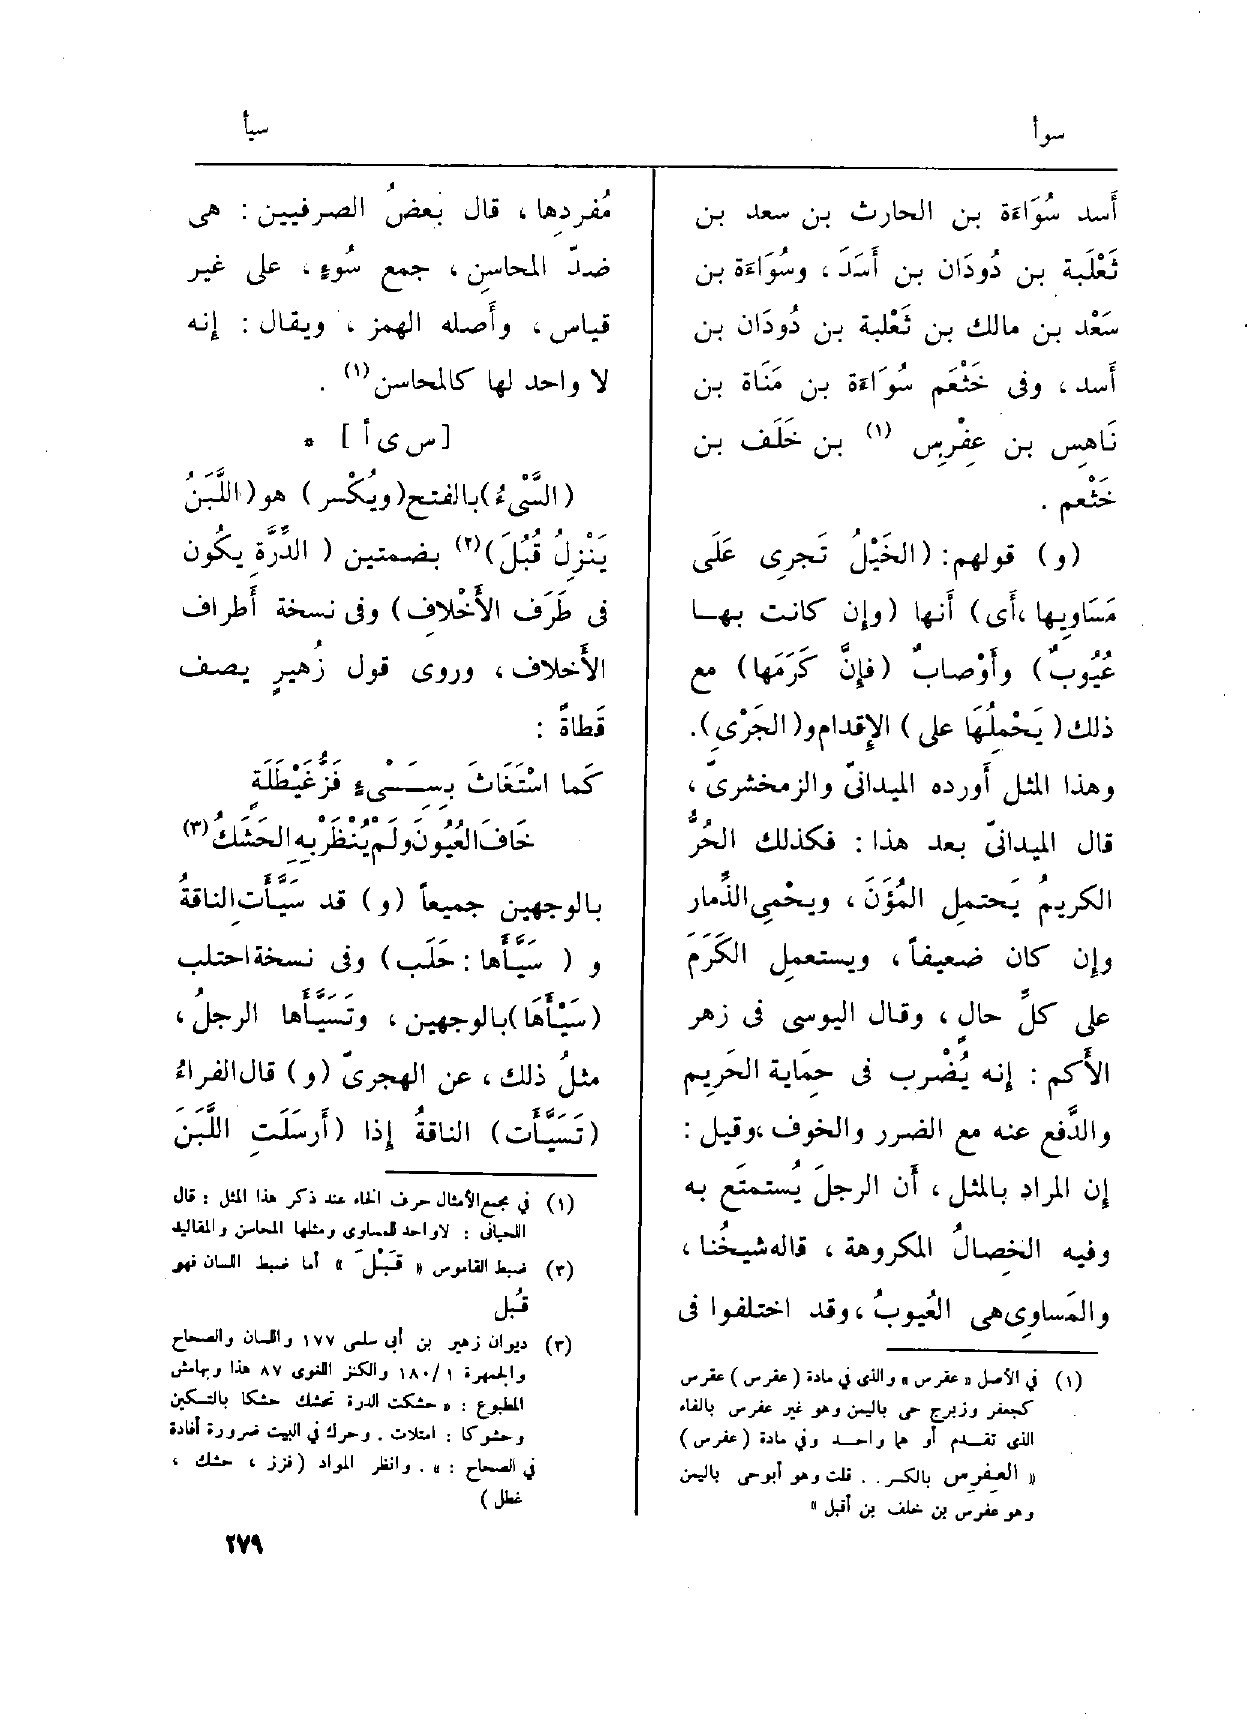 سوأ
سيأ
أَسد سُوَاءَة بن الحارث بن سعد بن
ثَعْلَبة بن دُودَان بن أَسَدَ ، وسُوَاءَة بن
سَعْد بن مالك بن ثَعْلبة بن دُودَان بن
أَسد ، وفى خَثْعَم سُوَاءَة بن مَنَاة بن
نَاهِس بن عِفْرِس (١) بن خَلَف بن
خَثْعم .
(و) قولهم: (الخَيْلُ تَجرِى عَلَى
مَسَاوِيها ،أَى) أَنها (وإن كانت بهـا
عُيُوبٌ) وأَوْصابٌ (فإِنَّ كَرَمَها) مع
ذلك (يَحْمِلُهَا على) الإِقدام و(الجَرْىِ).
وهذا المثل أَورده الميدانىّ والزمخشرىّ ،
قال الميدانىّ بعد هذا : فكذلك الحُرُّ
الكريمُ يَحتمِل المُؤَنَ ، ويحْمِى الذِّمار
وإن كان ضعيفاً ، ويستعمِل الكَرَمَ
على كلِّ حالٍ ، وقال اليوسى فى زهر
الأَكم : إنه يُضْرب فى حِمَاية الحَرِيم
والدَّفع عنه مع الضرر والخوف ،وقيل :
إن المراد بالمثل ، أَن الرجلَ يُستمتَع به
وفيه الخِصالُ المكروهة ، قاله شيخُنا ،
والمَساوِى هى العُيوبُ ،وقد اختلفوا فى
(١) فى الأصل « عقرس » والذى فى مادة (عقرس) عقرس
كجعفر وزبرج حى باليمن وهو غير عفرس بالفاء
الذى تقـدم أو هما واحـد وفى مادة (عفرس)
« العِفْرِس بالكسر . . قلت وهو أبوحى باليمن
وهو عفرس بن خلف بن أقبل »
مُفردِها ، قال بَعضُ الصرفيين : هى
ضدّ المحاسن ، جمع سُوءٍ ، على غير
قياس ، وأَصله الهمز ، ويقال : إنه
لا واحد لها كالمحاسن (١) .
[س ى أ] *
(السَّىْءُ) بالفتح (ويُكْسر) هو (اللَّبَنُ
يَنْزِلُ قُبُلَ) (٢) بضمتين ( الدِّرَّةِ يكون
فى طَرَفِ الأَخْلافِ) وفى نسخة أَطراف
الأَخلاف ، وروى قول زُهيرٍ يصف
قَطاةً :
كَما اسْتَغَاثَ بِسَـىْءٍ فَزُّ غَيْطَلَةٍ
خَافَ العُيُونَ ولَمْ يُنْظَرْ بِهِ الحَشَكُ (٣)
بالوجهين جميعاً (و) قد سَيَّأَت الناقةُ
و ( سَيَّأَها : حَلَب) وفى نسخة احتلب
(سَيْأَهَا) بالوجهين ، وتَسَيَّأَها الرجلُ ،
مثلُ ذلك ، عن الهجرىّ (و) قال الفراءُ
(تَسَيَّأَت) الناقةُ إذا (أَرسَلَتِ اللَّبَنَ
(١) فى مجمع الأمثال حرف الخاء عند ذكر هذا المثل : قال
اللحيانى : لاواحد للمساوى ومثلها المحاسن والمقاليد
(٢) ضبط القاموس « قَبْلَ » أما ضبط اللسان فهو
قُبُل
(٣) ديوان زهير بن أبى سلمى ١٧٧ واللسان والصحاح
والجمهرة ١/ ١٨٠ والكنز اللغوى ٨٧ هذا وبهامش
المطبوع : « حشكت الدرة تحشك حشكا بالتسكين
وحشوكا : امتلأت . وحرك فى البيت ضرورة أفادة
فى الصحاح : » . وانظر المواد (فزز ، حشك ،
غطل)
٢٧٩